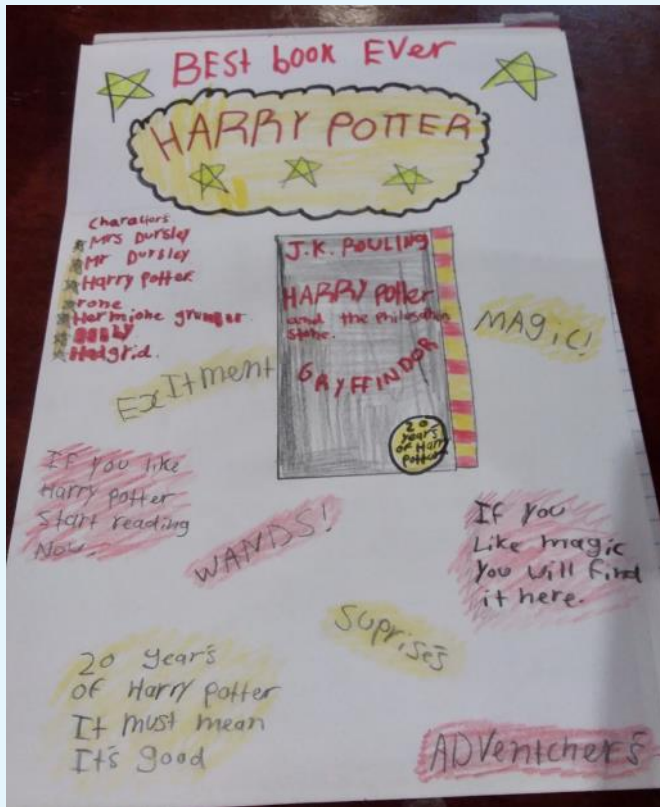 BESt book EVer
HARRY POTTER
Charactors
Mrs Dursley
Mr Dursley
Harry Potter
rone
Hermiohe grunger
Hadgrid.
J.K. ROULING
HARRY Potter
and the Philosophers
Stone.
GRYFFINDOR
20
year's
of Harry
Potter
MAGic!
ExItment
If you like
Harry Potter
Start reading
Now.
WANDS!
If you
Like magic
you will find
it here.
Suprises
20 year's
of Harry Potter
It must mean
It's good
ADVentcher's